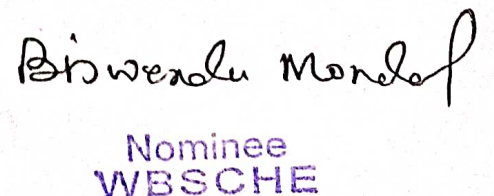 Biswendu Mondal
Nominee
WBSCHE